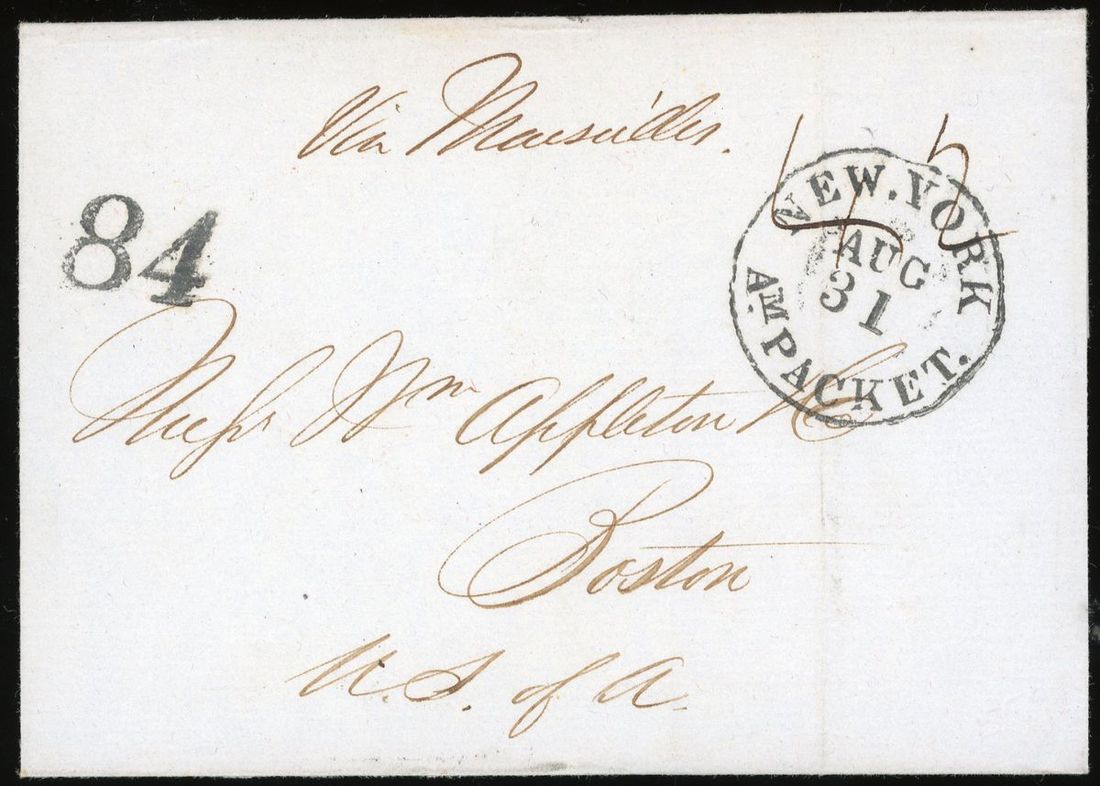 Via Marseilles.
84
NEW. YORK
AUG
31
AM PACKET.
Messrs Wm Appleton & Co
Boston
U. S. of A.